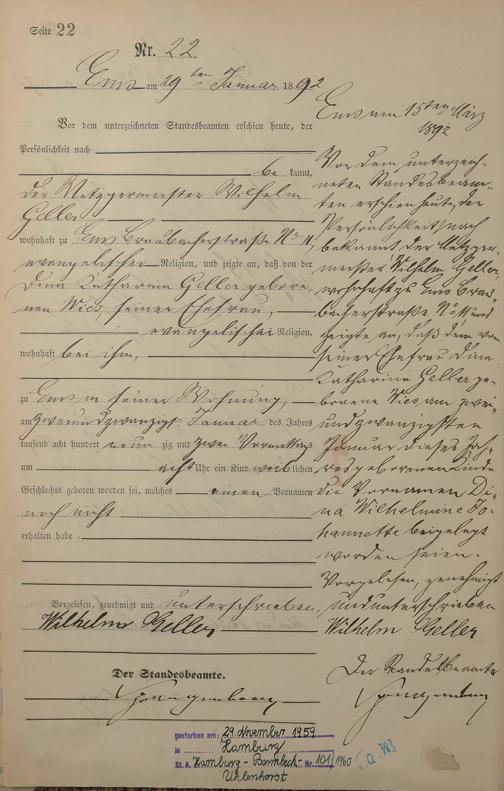 Seite 22
Nr. 22
Ems am 29ten Januar 1892
Vor dem unterzeichneten Standesbeamten erschien heute, der
Persönlichkeit nach
bekannt,
der Metzgermeister Wilhelm
Geller
wohnhaft zu Ems Braubacherstraße No 11,
evangelischer Religion, und zeigte an, daß von der
Dina Katharina Geller gebore-
nen Nies seiner Ehefrau,
evangelischer Religion,
wohnhaft bei ihm,
zu Ems in seiner Wohnung,
am zweiundzwanzigsten Januar des Jahres
tausend acht hundert neunzig und zwei Vormittags
um acht Uhr ein Kind weiblichen
Geschlechts geboren worden sei, welches einen Vornamen
noch nicht
erhalten habe
Vorgelesen, genehmigt und unterschrieben
Wilhelm Geller
Der Standesbeamte.
Spangenberg
Ems am 15ten März
1892
Vor dem unterzeich-
neten Standesbeam-
ten erschien heute, der
Persönlichkeit nach
bekannt, der Metzger-
meister Wilhelm Geller,
wohnhaft zu Ems Brau-
bacherstraße No 11 und
zeigte an, daß dem von
seiner Ehefrau Dina
Katharina Geller ge-
borene Nies am zwei-
undzwanzigsten
Januar dieses Jah-
res geborenen Kinde
die Vornamen Di-
na Wilhelmine Jo-
hannette beigelegt
worden seien.
Vorgelesen, genehmigt
und unterschrieben
Wilhelm Geller
Der Standesbeamte
Spangenberg
gestorben am: 29. November 1959
in Hamburg
St. A. Hamburg-Barmbeck- Nr. 101/1960
Uhlenhorst